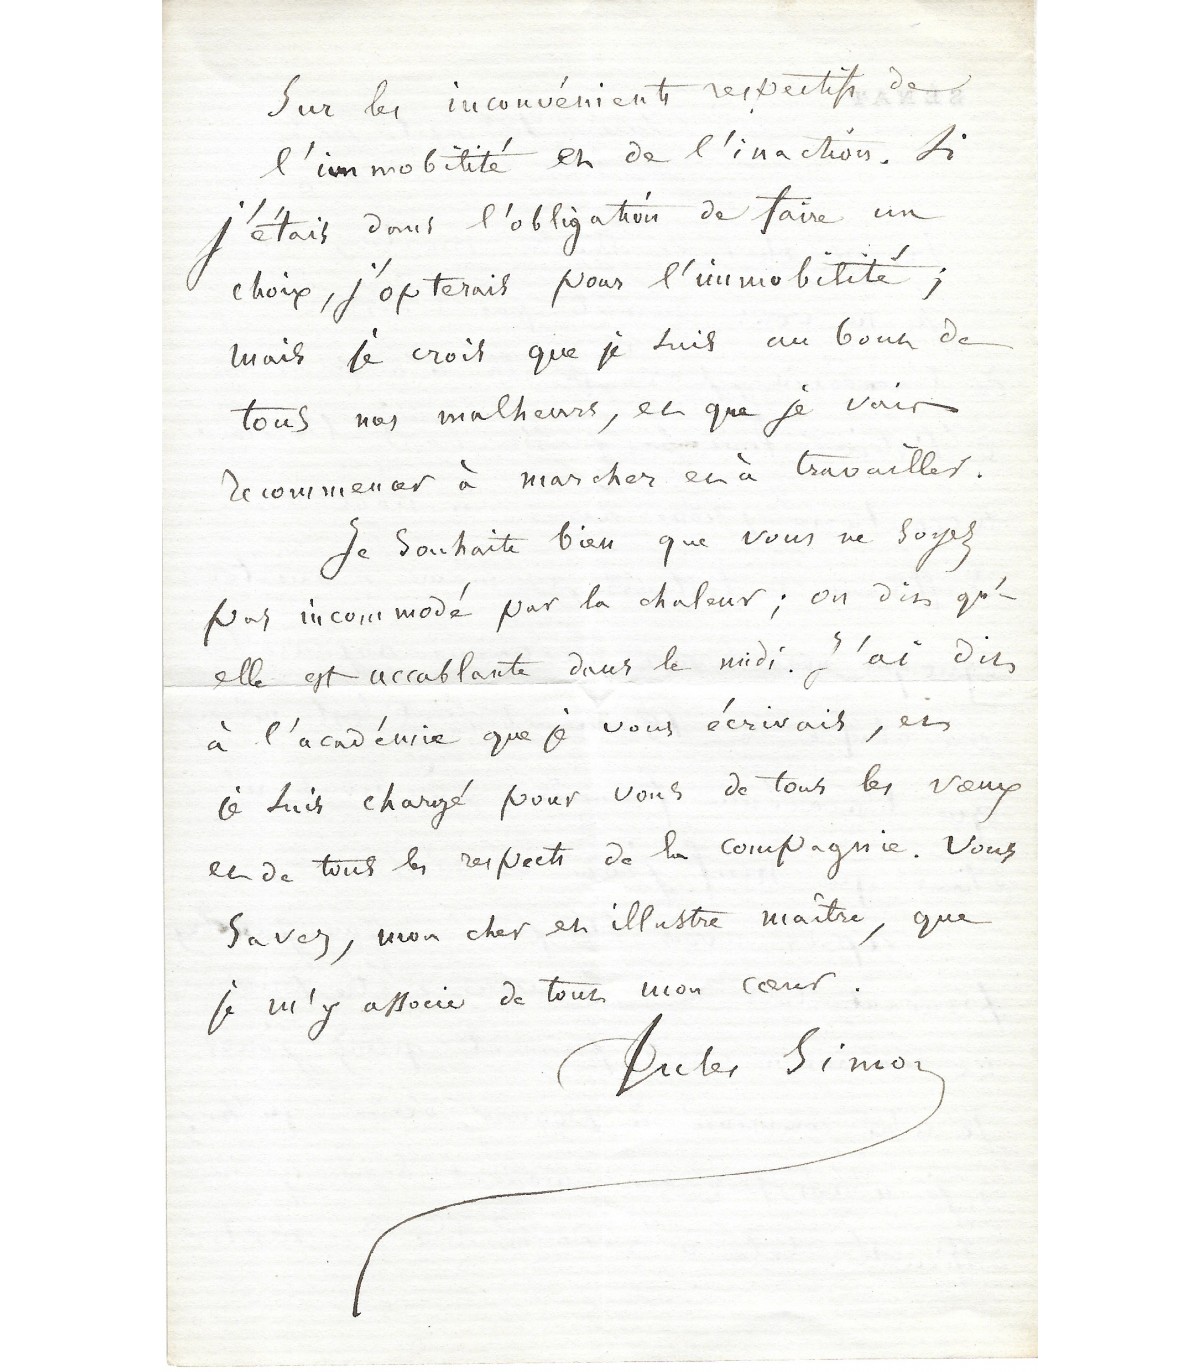 SENAT
Sur les inconvénients respectifs de
l'immobilité et de l'inaction. Si
j'étais dans l'obligation de faire un
choix, j'opterais pour l'immobilité ;
mais je crois que je suis au bout de
tous nos malheurs, et que je vais
recommencer à marcher et à travailler.
Je souhaite bien que vous ne soyez
pas incommodé par la chaleur ; on dit qu'
elle est accablante dans le midi. J'ai dit
à l'académie que je vous écrivais, et
je suis chargé pour vous de tous les vœux
et de tous les respects de la compagnie. Vous
savez, mon cher et illustre maître, que
je m'y associe de tout mon cœur.
Jules Simon